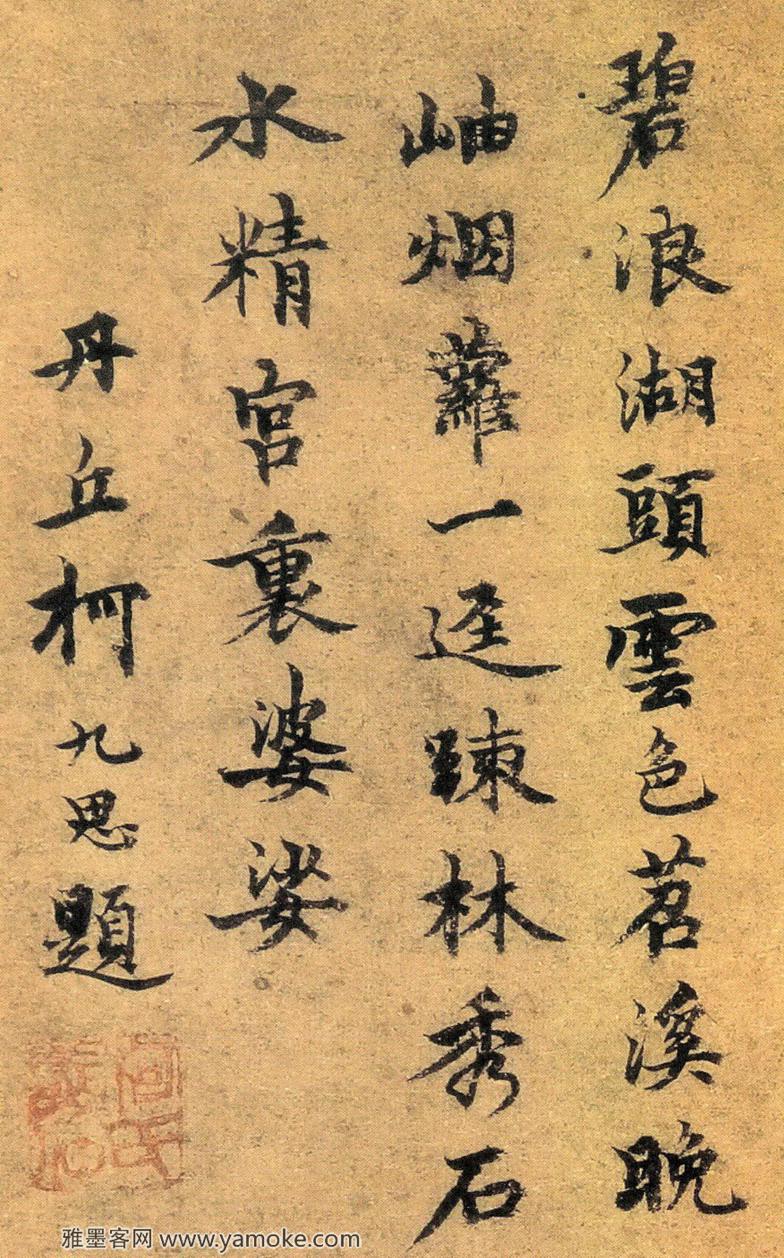 碧浪湖頭雲色苕溪晩
岫烟蘿一迳踈林秀石
水精宮裏婆娑
丹丘柯九思題
雅墨客网 www.yamoke.com